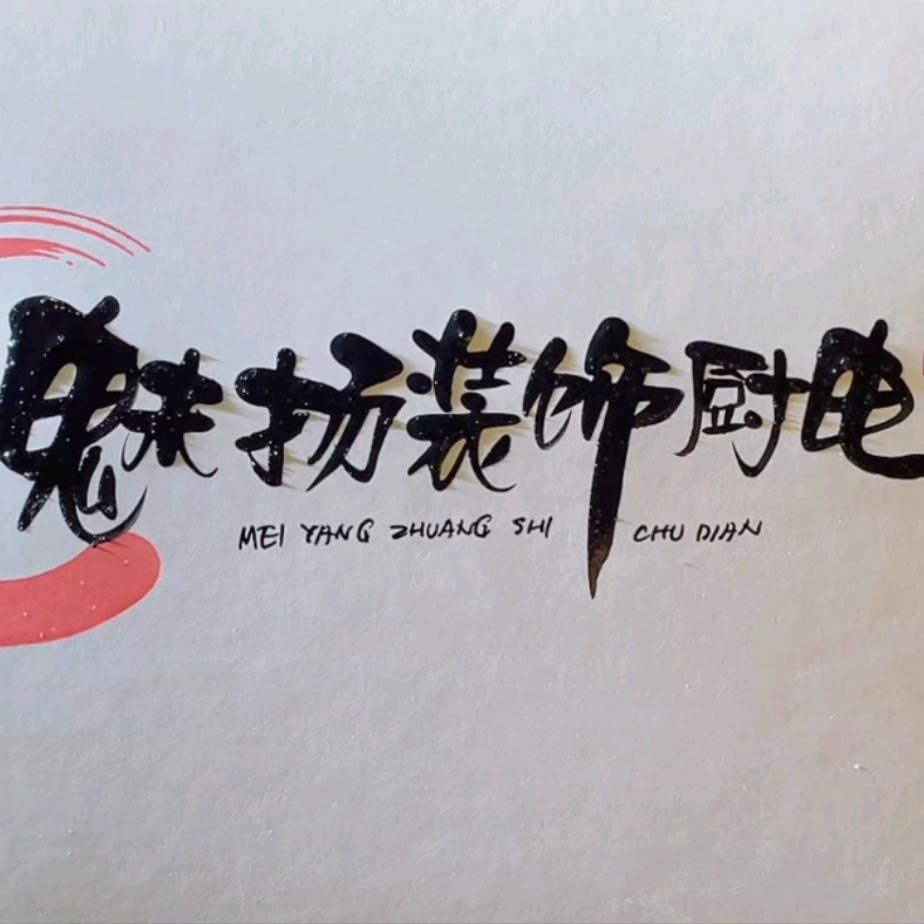 魅扬装饰厨电
MEI YANG ZHUANG SHI CHU DIAN